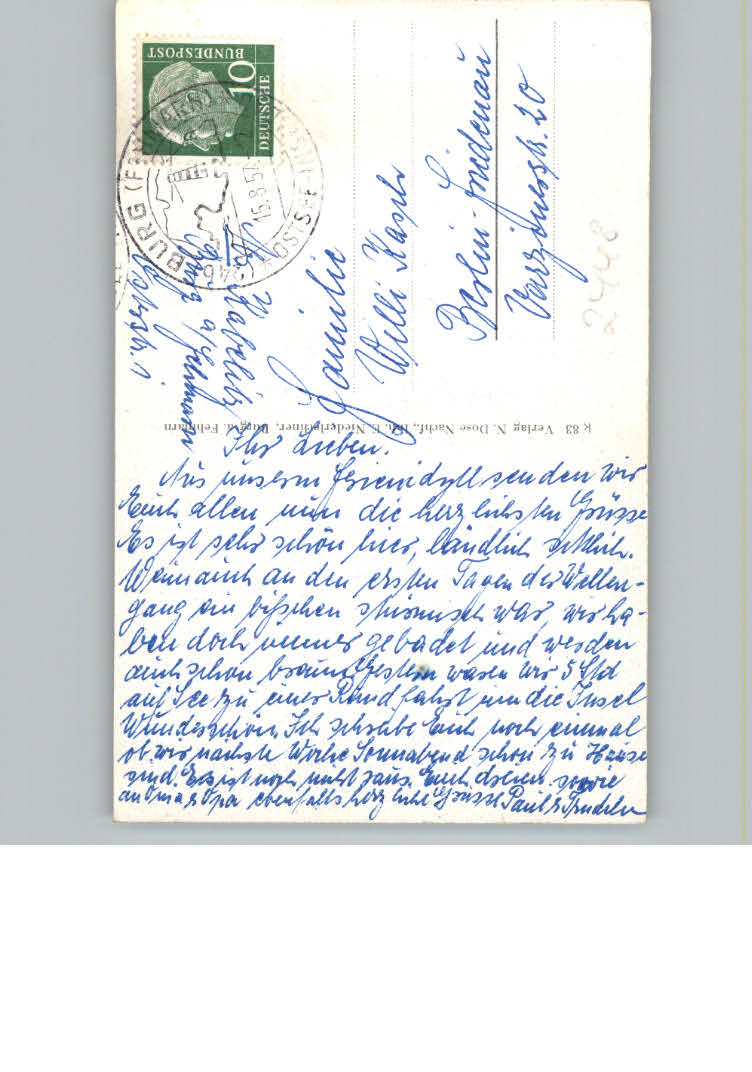 DEUTSCHE
10
BUNDESPOST
(24b) BURG (FEHMARN)
15.8.57
OSTSEE
Burg a/Fehmarn
Familie
Willi Kasper
Berlin-Friedenau
Varzinerstr. 20
2448
k 83 Verlag N. Dose Nachf., Inh. E. Niederlechner, Burg a. Fehmarn
Ihr Lieben.
Aus unserm Ferienidyll senden wir
Euch allen nun die herzlichsten Grüsse
Es ist sehr schön hier, ländlich sittlich.
Wenn auch an den ersten Tagen der Wellen-
gang ein bisschen stürmisch war, wir ha-
ben doch immer gebadet und werden
auch schon braun. Gestern waren wir 5 Std
auf See zu einer Rundfahrt um die Insel
Wunderschön. Ich schreibe Euch noch einmal
ob wir nächste Woche Sonnabend schon zu Hause
sind. Es ist noch nicht raus. Euch dreien sowie
an Oma & Opa ebenfalls herzliche Grüsse Paul &